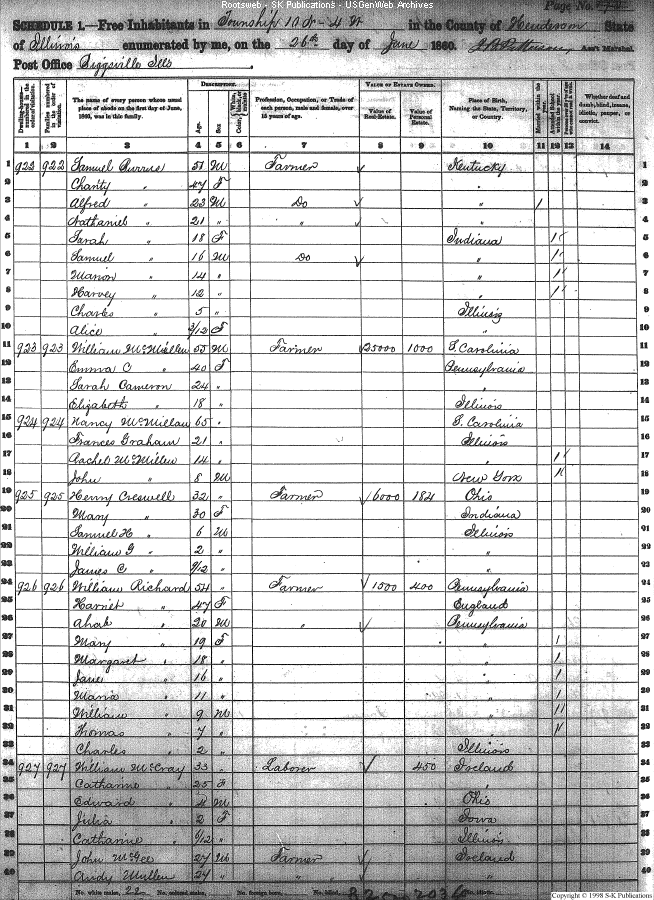 Rootsweb - SK Publications - USGenWeb Archives
Page No.
SCHEDULE 1.—Free Inhabitants in Township 10 N - 4 W in the County of Henderson State
of Illinois enumerated by me, on the 26th day of June 1860. Ass't Marshal.
Post Office Biggsville Ills
Dwelling-houses numbered in the order of visitation.
Families numbered in the order of visitation.
The name of every person whose usual place of abode on the first day of June, 1860, was in this family.
DESCRIPTION.
Age.
Sex.
Color,
Profession, Occupation, or Trade of each person, male and female, over 15 years of age.
VALUE OF ESTATE OWNED.
Value of Real Estate.
Value of Personal Estate.
Place of Birth, Naming the State, Territory, or Country.
Married within the year.
Whether deaf and dumb, blind, insane, idiotic, pauper, or convict.
1 2 3 4 5 6 7 8 9 10 11 12 13 14
1 922 922 Samuel Burrus 51 M Farmer Kentucky 1
2 Charity " 47 F " 2
3 Alfred " 23 M Do " 1 3
4 Nathaniel " 21 " " " 4
5 Sarah " 18 F Indiana 1 5
6 Samuel " 16 M Do " 1 6
7 Marion " 14 " " 1 7
8 Harvey " 12 " " 1 8
9 Charles " 5 " Illinois 9
10 Alice " 3/12 F " 10
11 923 923 William McMillen 55 M Farmer 25000 1000 S. Carolina 11
12 Emma C " 40 F Pennsylvania 12
13 Sarah Cameron 24 " " 13
14 Elizabeth " 18 " Illinois 14
15 924 924 Nancy McMillan 65 " S. Carolina 15
16 Frances Graham 21 " Illinois 16
17 Rachel McMillen 14 " " 1 17
18 John " 8 M New York 1 18
19 925 925 Henry Creswell 32 " Farmer 6000 184 Ohio 19
20 Mary " 30 F Indiana 20
21 Samuel H " 6 M Illinois 21
22 William G " 2 " " 22
23 James C " 9/12 " " 23
24 926 926 William Richard 54 " Farmer 1500 400 Pennsylvania 24
25 Harriet " 47 F England 25
26 Ahab " 20 M " Pennsylvania 26
27 Mary " 19 F " 1 27
28 Margaret " 18 " " 1 28
29 Jane " 16 " " 1 29
30 Maria " 11 " " 1 30
31 William " 9 M " 11 31
32 Thomas " 7 " " 11 32
33 Charles " 2 " Illinois 33
34 927 927 William McCray 33 " Laborer 450 Ireland 34
35 Catharine " 25 F " 35
36 Edward " 4 M Ohio 36
37 Julia " 2 F Iowa 37
38 Catharine " Illinois 38
39 John McGee 27 M Farmer Ireland 39
40 Andy Mullen 24 " " " 40
No. white males, 22 No. colored males, No. foreign born, No. blind,
Copyright © 1998 S-K Publications